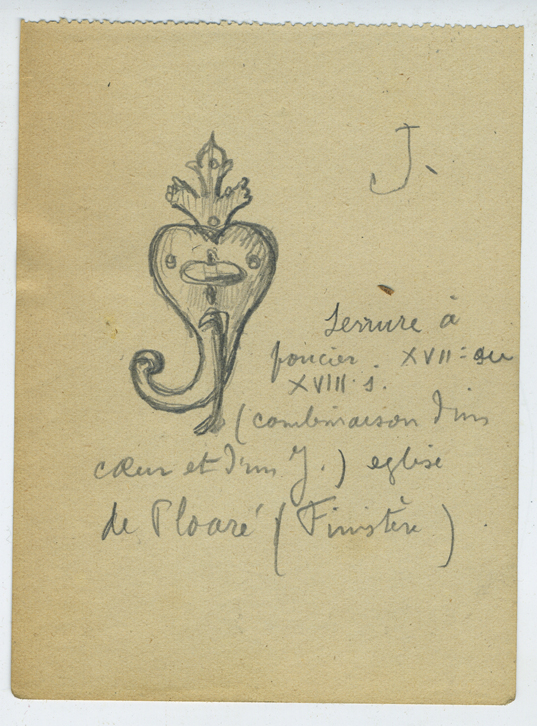 J.
Serrure à
poucier. XVII= ou
XVIII s.
(combinaison d'un
cœur et d'un J.) eglise
de Ploaré (Finistère)